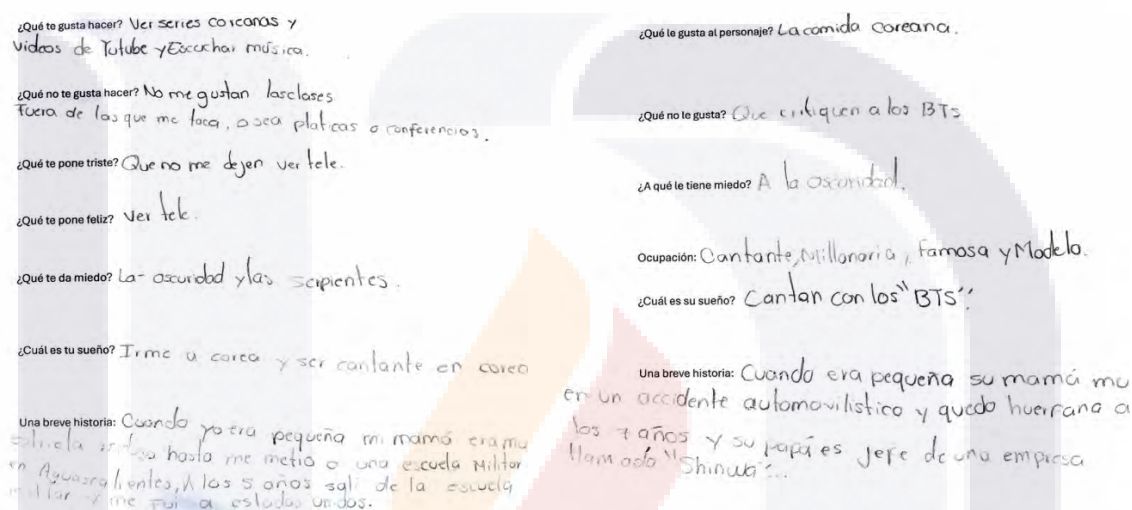 ¿Qué te gusta hacer? Ver series coreanas y
videos de Yutube y Escuchar música.
¿Qué no te gusta hacer? No me gustan las clases
Fuera de las que me toca, o sea platicas o conferencias.
¿Qué te pone triste? Que no me dejen ver tele.
¿Qué te pone feliz? Ver tele.
¿Qué te da miedo? La- oscuridad y las serpientes.
¿Cuál es tu sueño? Irme a corea y ser cantante en corea
Una breve historia: Cuando yo era pequeña mi mamá era mu
hasta me metio a una escuela Militar
en Aguascalientes, A los 5 años sali de la escuela
militar y me fui a estados unidos.
¿Qué le gusta al personaje? La comida coreana.
¿Qué no le gusta? Que critiquen a los BTS
¿A qué le tiene miedo? A la oscuridad.
Ocupación: Cantante, Millonaria, famosa y Modelo.
¿Cuál es su sueño? Cantan con los "BTS".
Una breve historia: Cuando era pequeña su mamá mu
en un accidente automovilistico y quedo huerfana a
los 7 años y su papá es jefe de una empresa
llamada "Shinwa"...